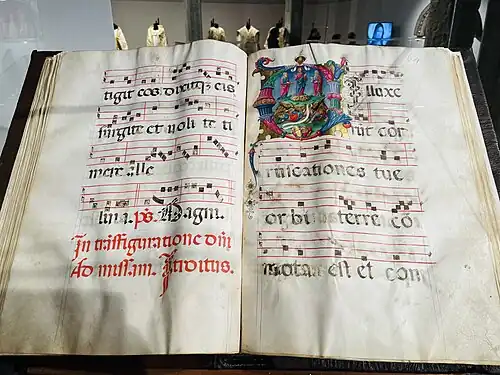 tigit eos: dixitq; eis
surgite et noli te ti
mere. alle
luia. ps. Magni.
In trãsfiguratione dñi
Ad missam. Itroitus.
Illuxe
rũt cor
ruscationes tue
terre. cō
mota est et con